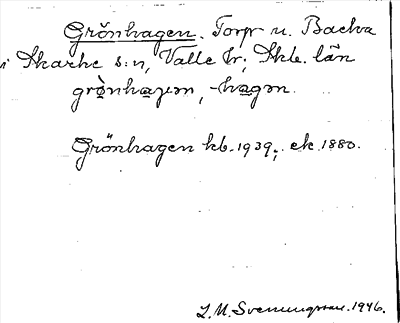 Grönhagen. Torp u. Backa
i Skarke s:n, Valle hr; Skb. län
grö̀nha̱gən, -ha̱gən.
Grönhagen kb. 1939; ek. 1880.
L. M. Svenungsson. 1946.